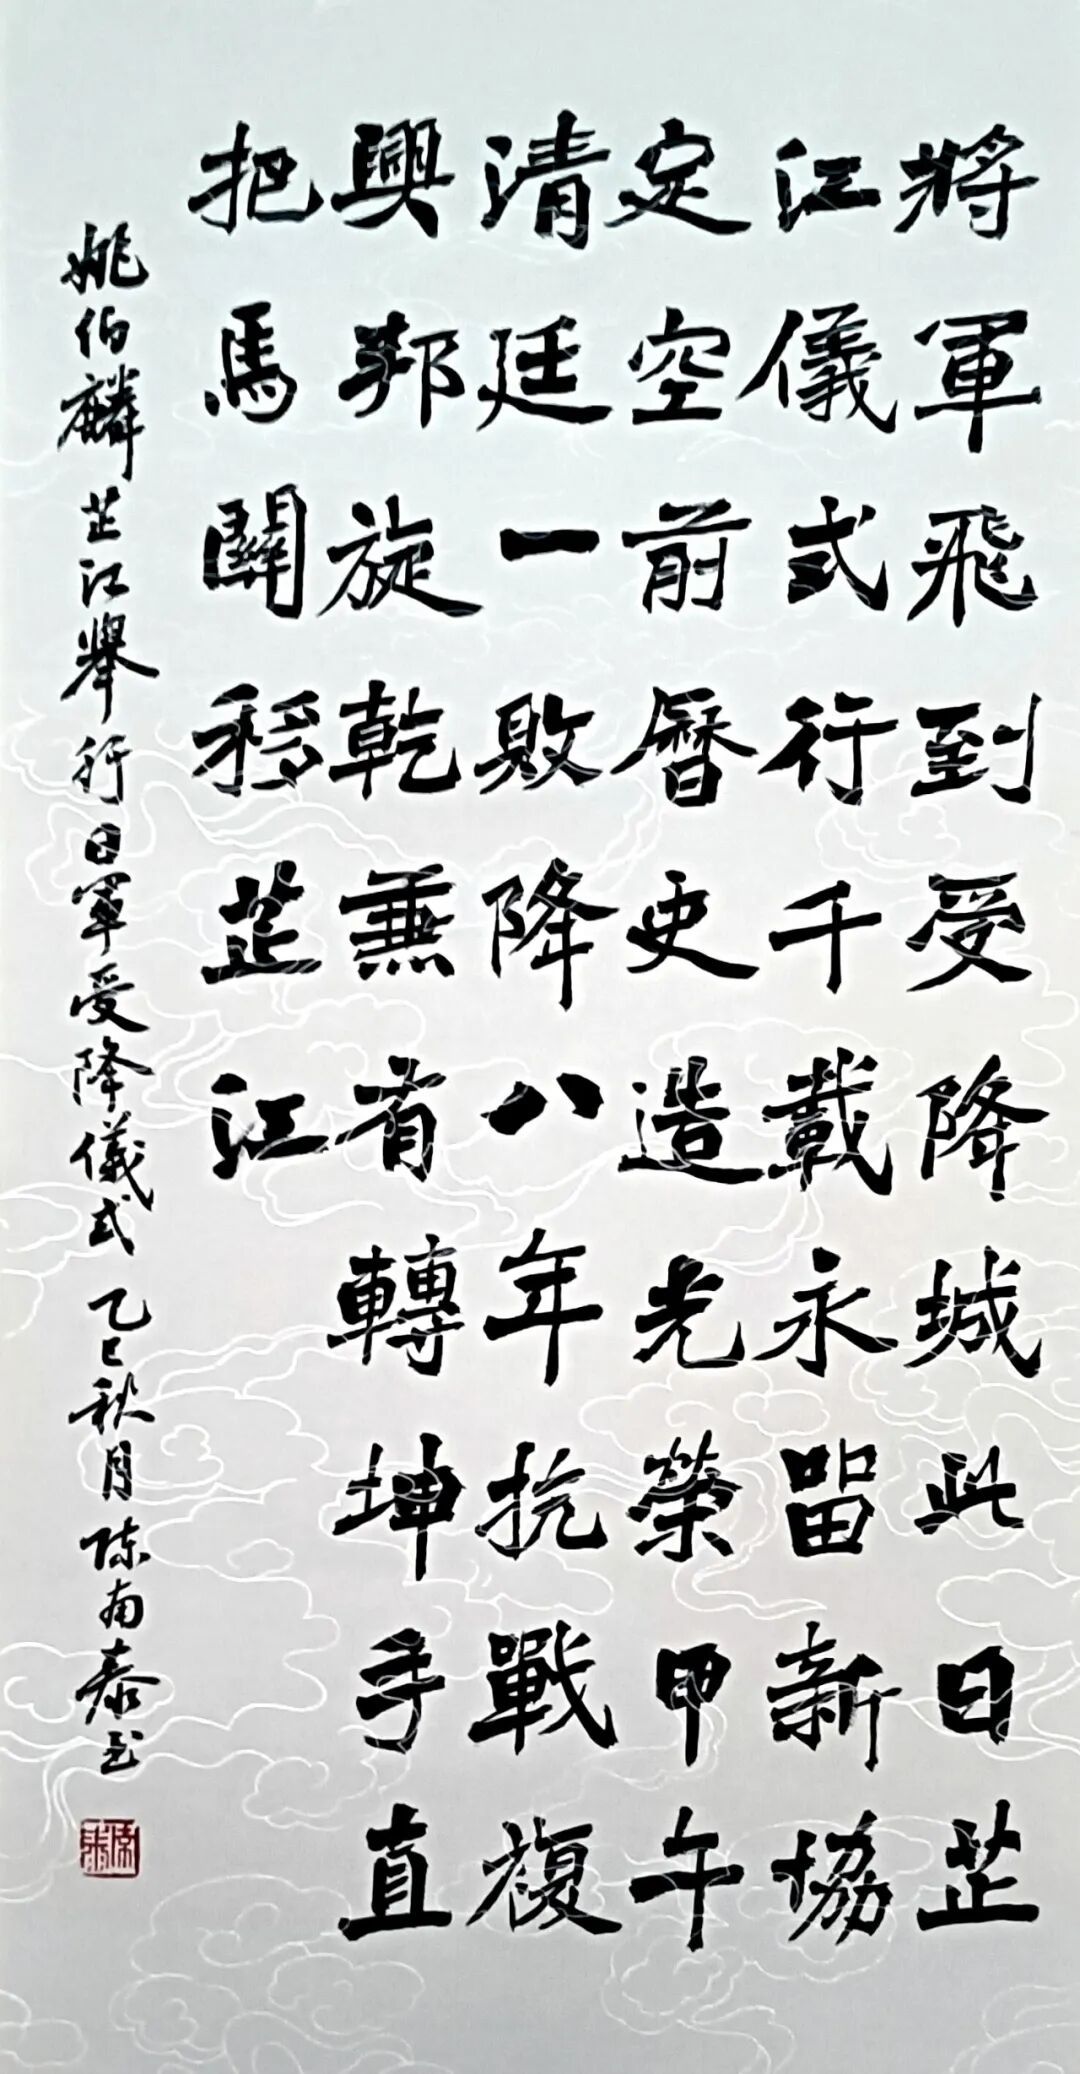 將軍飛到受降城此日芷
江儀式行千載永留新協
定空前曆史造光榮甲午
清廷一敗降八年抗戰複
興邦旋乾兼有轉坤手直
把馬關移芷江
姚伯麟芷江舉行日軍受降儀式 乙巳秋月 陳南泰书